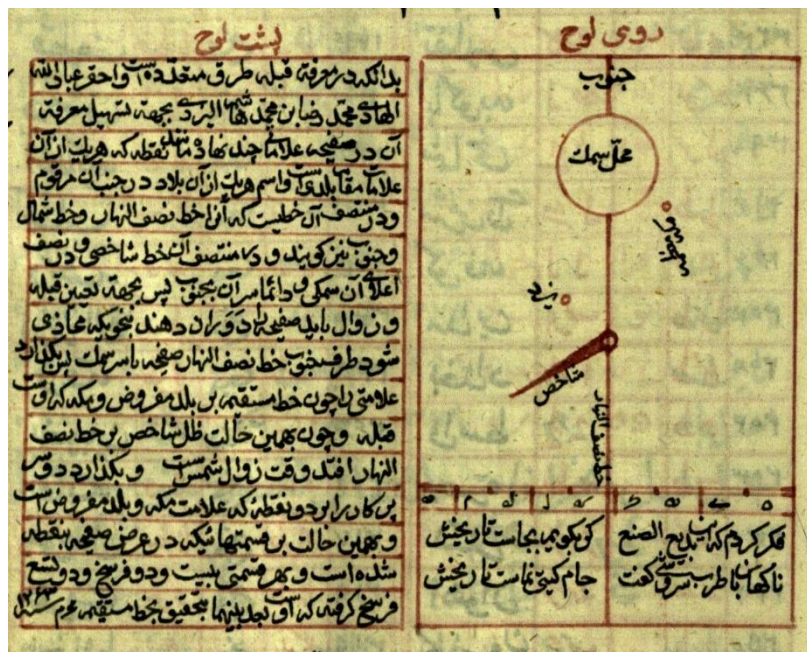 روی لوح
جنوب
محلّ سمک
یزد
شاخص
خط نصف النهار
فکر کردم که این بدیع الصنع
کو بگویم بجاست تاریخش
ناکهان با طرب سروشی گفت
جام کیتی نماست تاریخش
پشت لوح
بدانکه در معرفة قبله طرق متعدّده است و احقر عباد الله
الهادی محمّد رضا بن محمّد هاشم الیزدی بجهة تسهیل معرفة
آن در صفیحه علاماتی چند نهاده مانند نقطه که هریک از آن
علامات مقابله بلدی است و اسم هریک از آن بلاد در جنب آن مرقوم
و در منتصف آن خطیست که آنرا خط نصف النهار و خط شمال
و جنوب نیز کویند و در منتصف آن خط شاخصی و در نصف
اعلای آن سمکی و دائما سر آن بجنوب پس بجهة تعیین قبله
و زوال باید صفیحه را دوران دهند بنحویکه محاذی
شود طرف جنوب خط نصف النهار صفیحه با سر سمک پس بکذارد
علامتی را چون خط مستقیم بر بلد مفروض و مکه که اوست
قبله و چون بهمین حالت ظل شاخص بر خط نصف
النهار افتد وقت زوال شمس است و بکذارد دو سر
پرکار را بر دو نقطهٔ که علامت مکه و بلد مفروض است
و بهمین حالت بر قسمتهائیکه در عرض صفیحه بنقطه
شده است و بهر قسمتی بیست و دو فرسخ و دو تسع
فرسخ کرفته که اوست بعد بینهما بتحقیق بخط مستقیم محرم سنه ۱۲۶۳